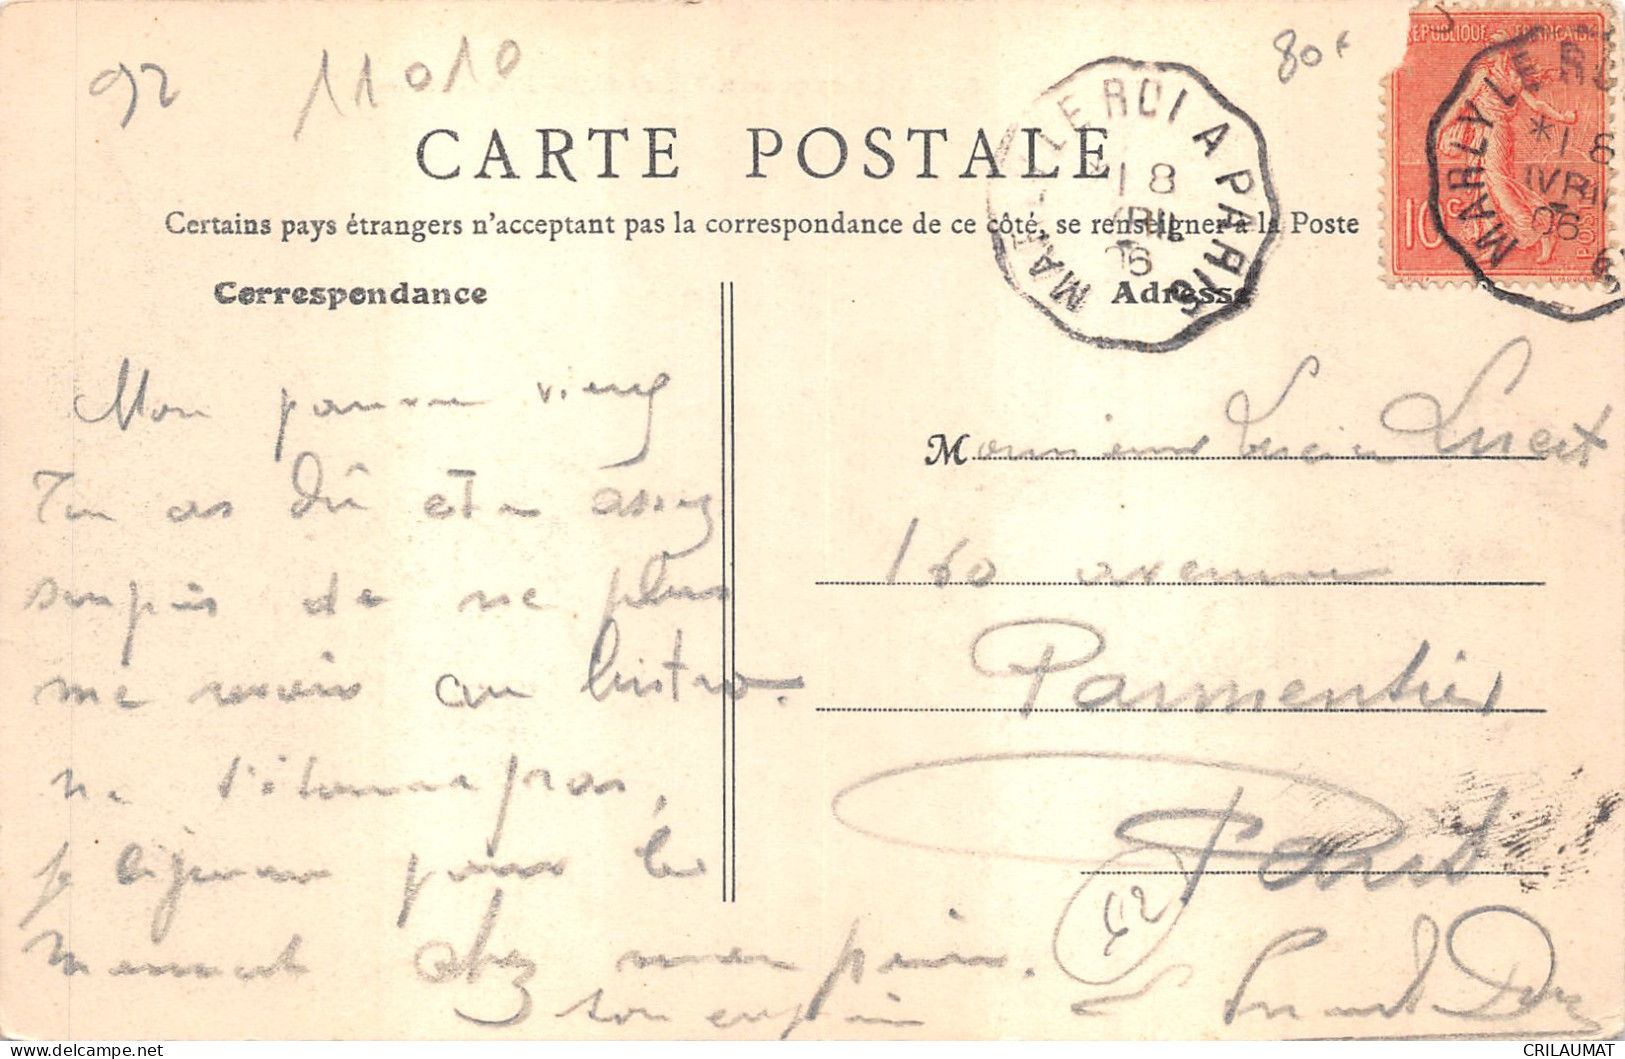 92
11010
80f
CARTE POSTALE
Certains pays étrangers n'acceptant pas la correspondance de ce côté, se renseigner à la Poste
Correspondance
Adresse
MARLY-LE-ROI A PARIS
18
AVRIL
06
RÉPUBLIQUE FRANÇAISE
10c
POSTES
MARLY LE ROI
*18
AVRIL
06
Mon pauvre vieux
Tu as dû être assez
surpris de ne plus
me revoir au bistro.
ne t'étonne pas,
je déjeune pour le
moment chez mon
ton copain
Monsieur Lucien
160 avenue
Parmentier
Paris
42
CRILAUMAT